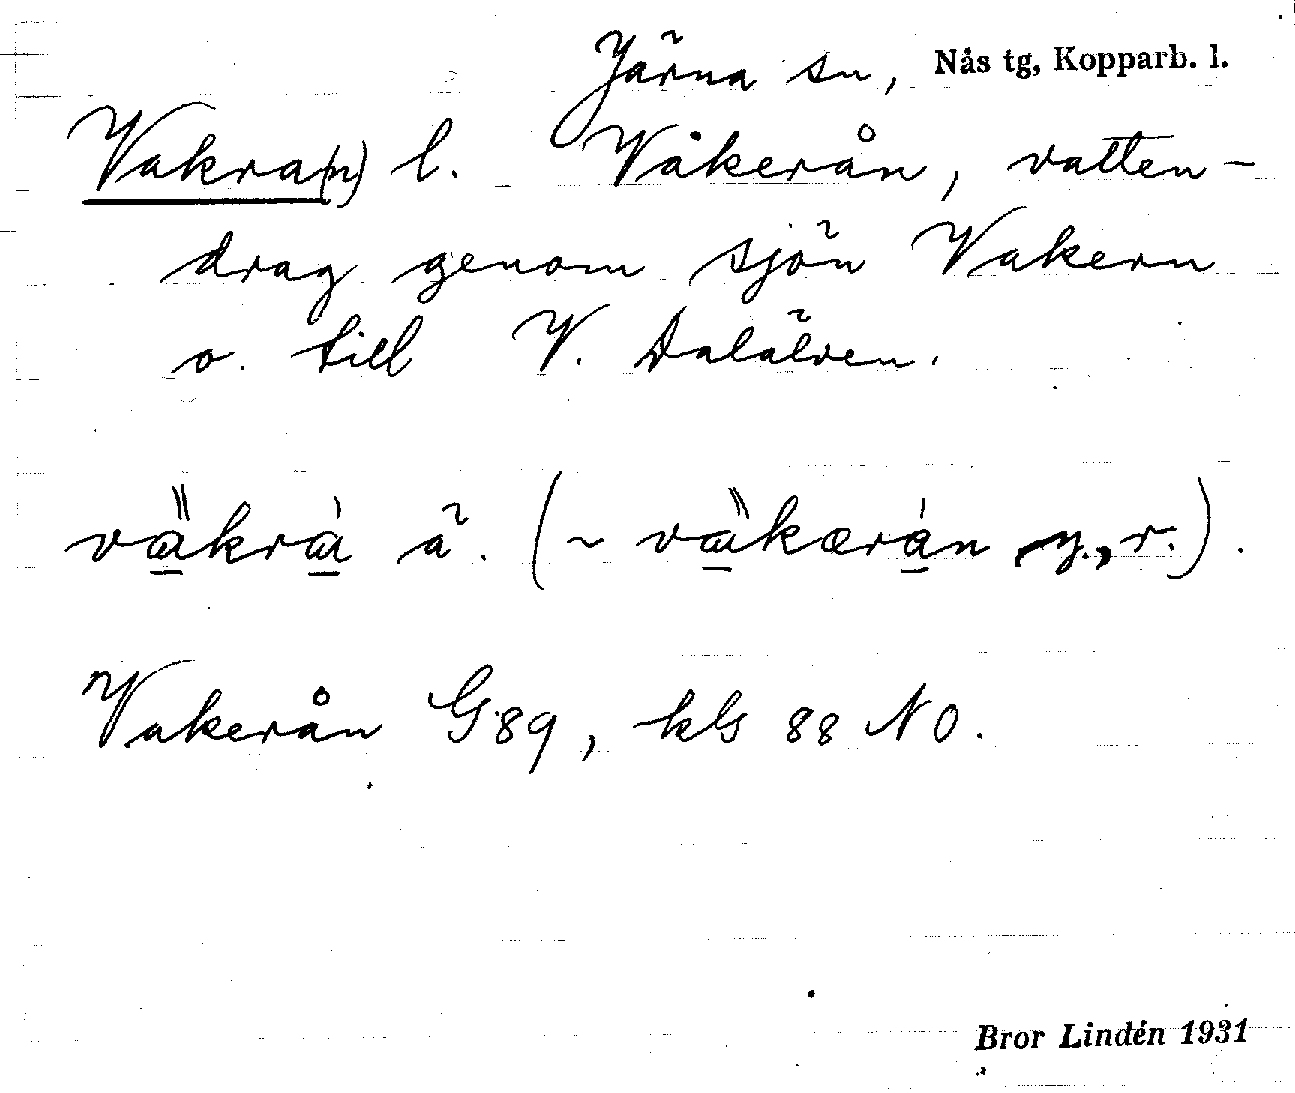 Järna sn, Nås tg, Kopparb. l.
Vakra(n) l. Våkerån, vatten-
drag genom sjön Vakern
o. till V. Dalälven.
à. (~ y., r.).
Vakerån G89, kls 88 NO.
Bror Lindén 1931